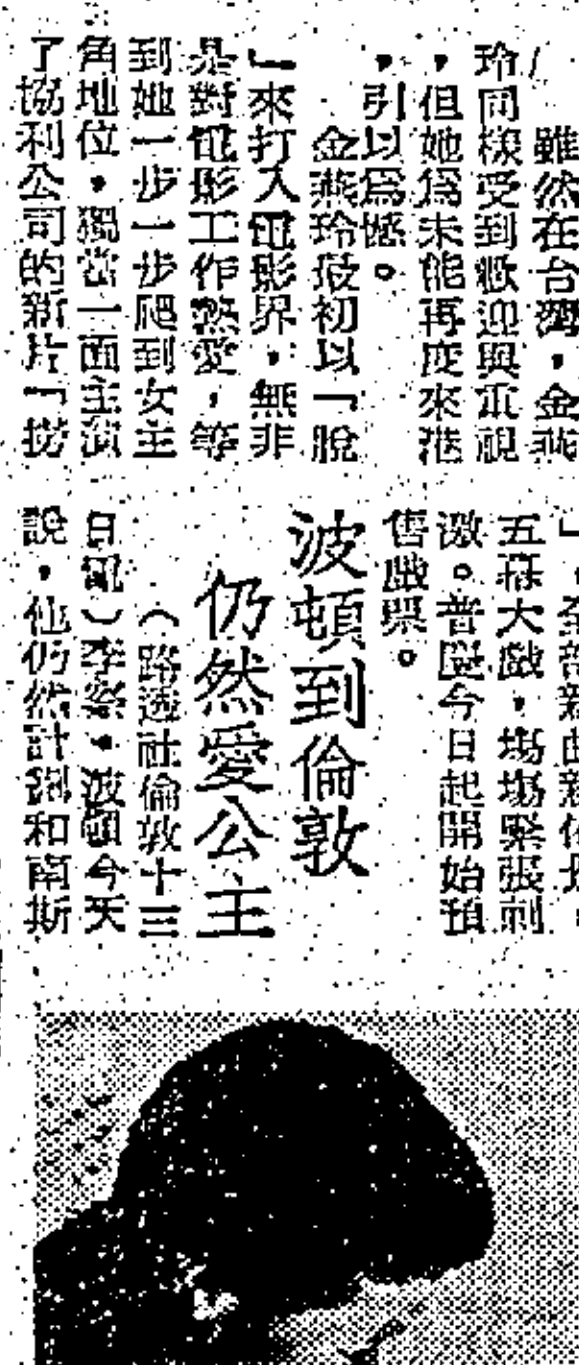 雖然在台灣，金燕
玲同樣受到歡迎與重視
，但她爲未能再度來港
，引以爲憾。
金燕玲最初以「脫
」來打入電影界，無非
是對電影工作熱愛，等
到她一步一步爬到女主
角地位，獨當一面主演
了協利公司的新片「撈
」，全部新曲新
五幕大戲，塲塲緊張刺
激。普慶今日起開始預
售戲票。
波頓到倫敦
仍然愛公主
（路透社倫敦十三
日訊）李察•波頓今天
說，他仍然計劃和南斯